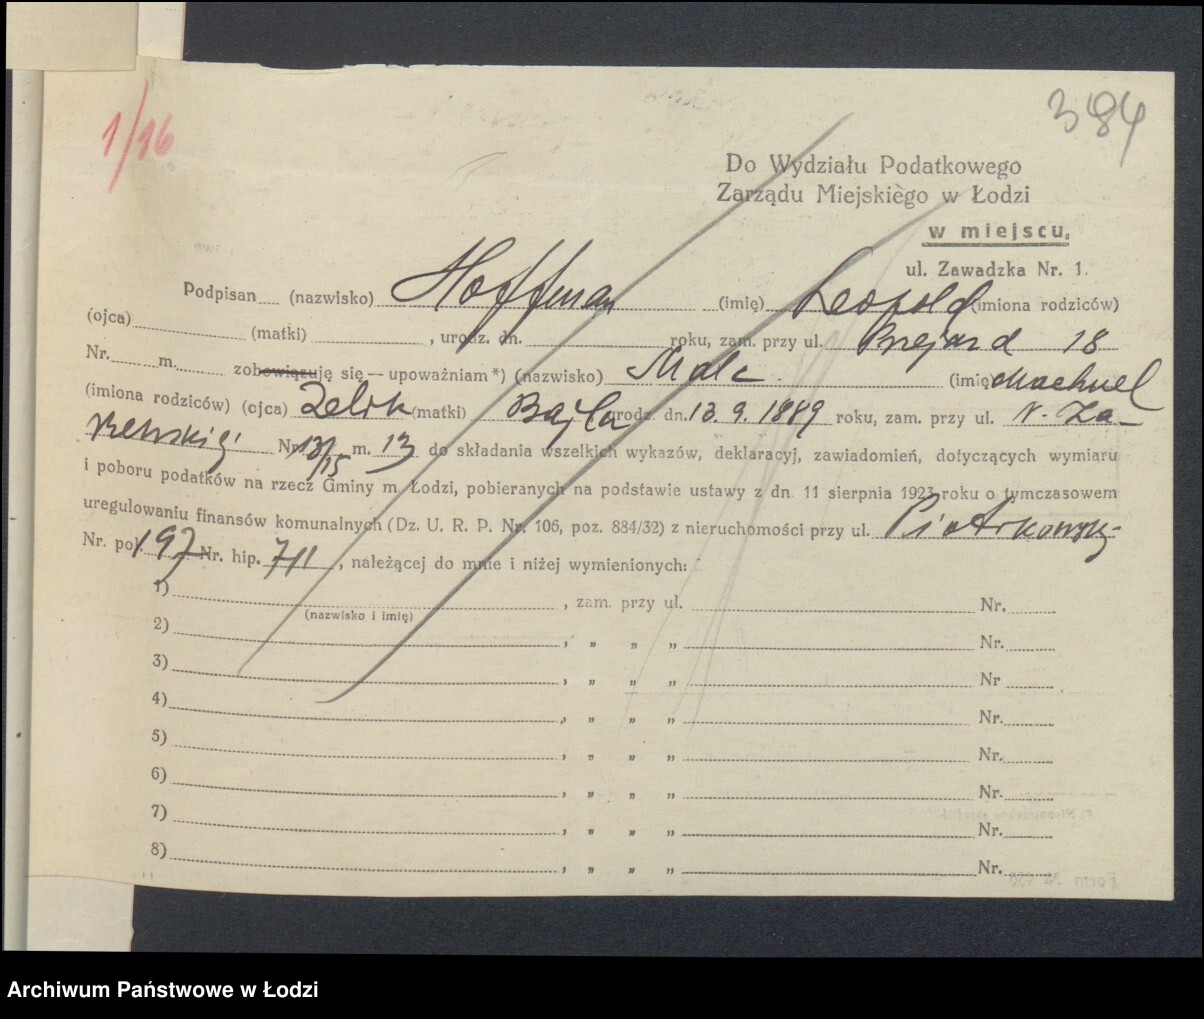 1/16
384
Do Wydziału Podatkowego
Zarządu Miejskiego w Łodzi
w miejscu.
ul. Zawadzka Nr. 1.
Podpisan (nazwisko) Hoffman (imię) Leopold (imiona rodziców)
(ojca) (matki) , urodz. dn. roku, zam. przy ul. 18
Nr. m. zobowiązuję się — upoważniam *) (nazwisko) Malc (imię)
(imiona rodziców) (ojca) Zelik (matki) Bajla urodz. dn. 13. 9. 1889 roku, zam. przy ul. N- Za-
rzewskiej Nr. 13/15 m. 13 do składania wszelkich wykazów, deklaracyj, zawiadomień, dotyczących wymiaru
i poboru podatków na rzecz Gminy m. Łodzi, pobieranych na podstawie ustawy z dn. 11 sierpnia 1923 roku o tymczasowem
uregulowaniu finansów komunalnych (Dz. U. R. P. Nr. 106, poz. 884/32) z nieruchomości przy ul. Piotrkowsk-
Nr. pol. 197 Nr. hip. 711 , należącej do mnie i niżej wymienionych:
1) , zam. przy ul. Nr.
(nazwisko i imię)
2) , „ „ „ Nr.
3) , „ „ „ Nr
4) , „ „ „ Nr.
5) , „ „ „ Nr.
6) , „ „ „ Nr.
7) , „ „ „ Nr.
8) , „ „ „ Nr.
Archiwum Państwowe w Łodzi